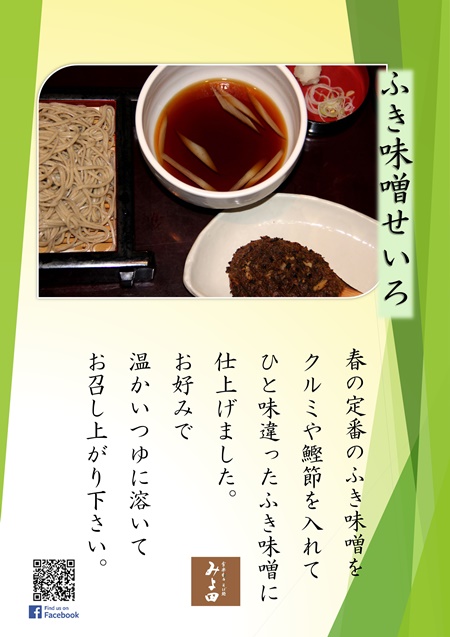 ふき味噌せいろ
春の定番のふき味噌を
クルミや鰹節を入れて
ひと味違ったふき味噌に
仕上げました。
お好みで
温かいつゆに溶いて
お召し上がり下さい。
みよ田
Find us on
Facebook